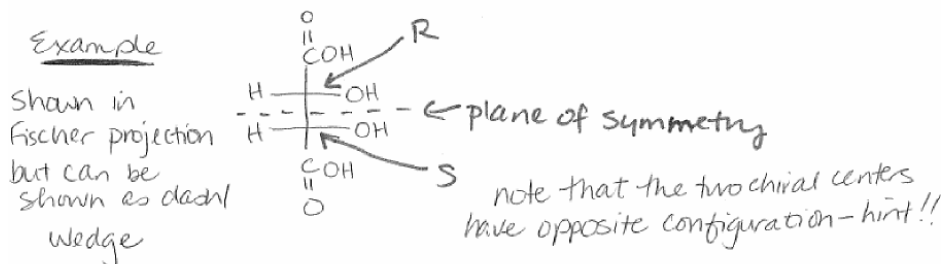 Example
Shown in
Fischer projection
but can be
shown as dash/
wedge
O
COH
R
H
OH
plane of symmetry
H
OH
COH
S
O
note that the two chiral centers
have opposite configuration - hint!!